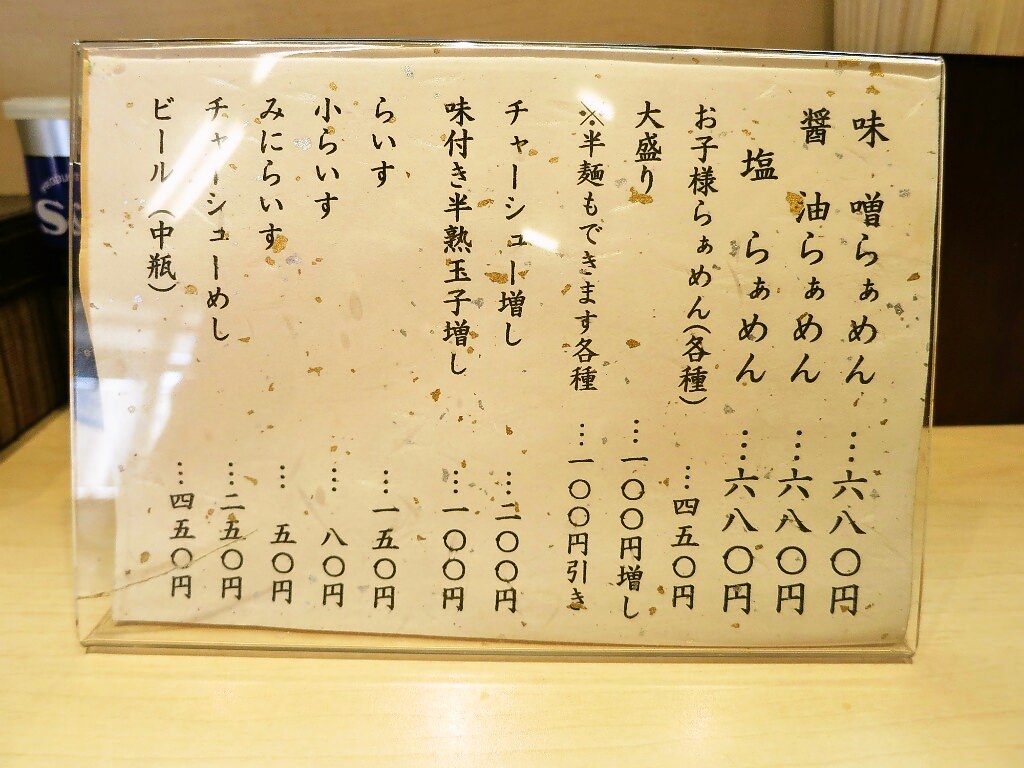 味噌らぁめん…六八〇円
醤油らぁめん…六八〇円
塩らぁめん…六八〇円
お子様らぁめん(各種)…四五〇円
大盛り…一〇〇円増し
※半麺もできます各種…一〇〇円引き
チャーシュー増し…二〇〇円
味付き半熟玉子増し…一〇〇円
らいす…一五〇円
小らいす…八〇円
みにらいす…五〇円
チャーシューめし…二五〇円
ビール(中瓶)…四五〇円